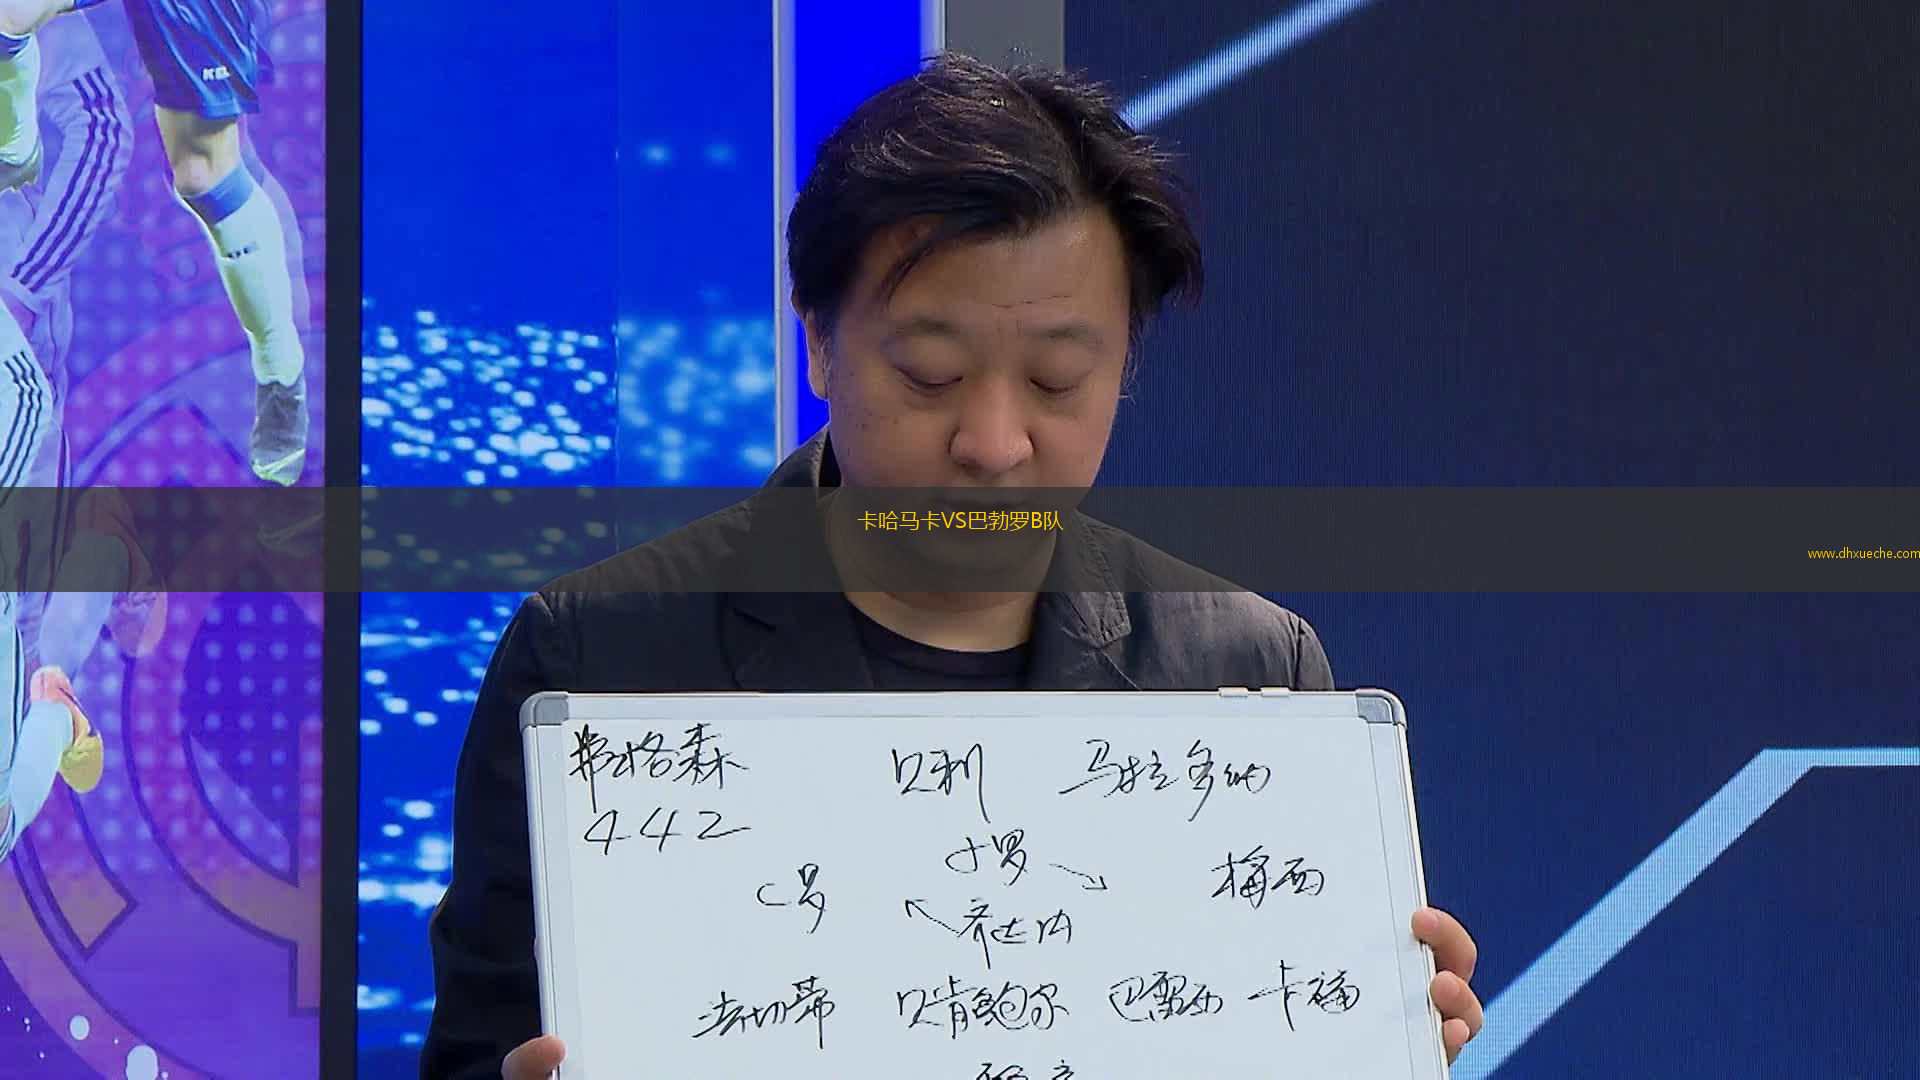 KEL
卡哈马卡VS巴勃罗B队
www.dhxueche.com
弗格森 贝利 马拉多纳
442
小罗
C罗 梅西
齐达内
法切蒂 贝肯鲍尔 巴雷西 卡福